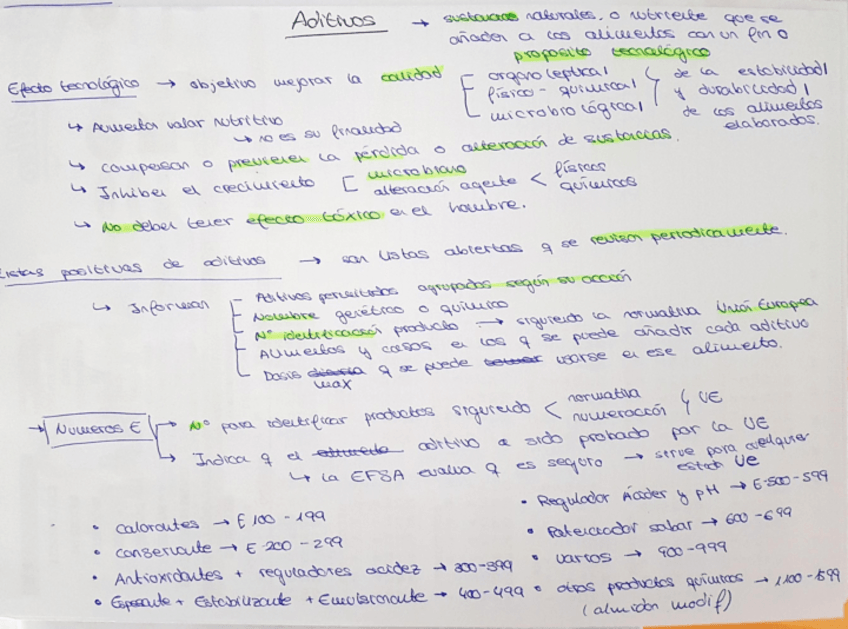 Aditivos → sustancias naturales, o nutriente que se
añaden a los alimentos con un fin o
propósito tecnológico
Efecto tecnológico → objetivo mejorar la calidad [ organoleptica / físico-química / microbiológica } de la estabilidad
y durabilidad
de los alimentos
elaborados.
↳ Aumenta valor nutritivo
↳ no es su finalidad
↳ compensan o previenen la pérdida o alteración de sustancias.
↳ Inhiben el crecimiento [ microbiano
alteración agente < físicos
químicos
↳ No deben tener efecto tóxico en el hombre.
Listas positivas de aditivos → son listas abiertas q se revisan periodicamente.
↳ Informan
Aditivos permitidos agrupados según su acción
Nombre genérico o químico
Nº identificación producto → siguiendo la normativa Unión Europea
Alimentos y casos en los q se puede añadir cada aditivo
Dosis max q se puede usarse en ese alimento.
→ Numeros E
Nº para identificar productos siguiendo < normativa
numeración } UE
↳ Indica q el aditivo a sido probado por la UE
↳ La EFSA evalua q es seguro → serve para cualquier
estado UE
• Colorantes → E 100 - 199
• Conservante → E-200 - 299
• Antioxidantes + reguladores acidez → 300-399
• Espesante + Estabilizante + Emulsionante → 400-499
• Regulador Ácidez y pH → E-500-599
• Potenciador sabor → 600-699
• Varios → 900-999
• otros productos químicos → 1.100-1599
(almidón modif)